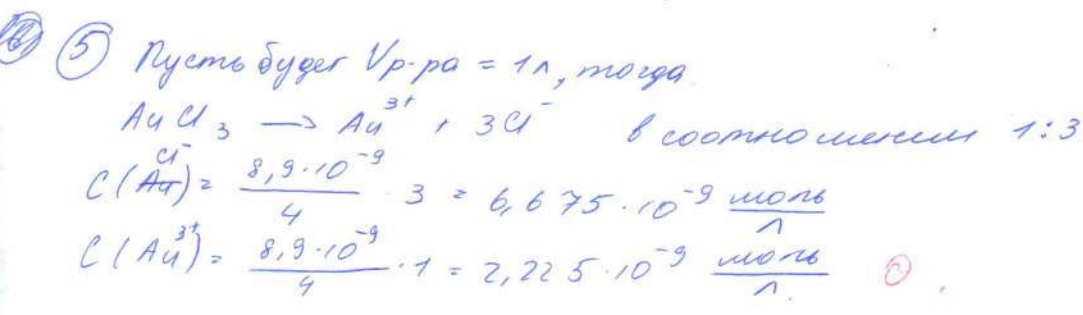 ⑤ Пусть будет Vр-ра = 1л, тогда
AuCl₃ → Au³⁺ + 3Cl⁻ в соотношении 1:3
C(Cl⁻) = 8,9·10⁻⁹/4 · 3 = 6,675·10⁻⁹ моль/л
C(Au³⁺) = 8,9·10⁻⁹/4 · 1 = 2,225·10⁻⁹ моль/л.